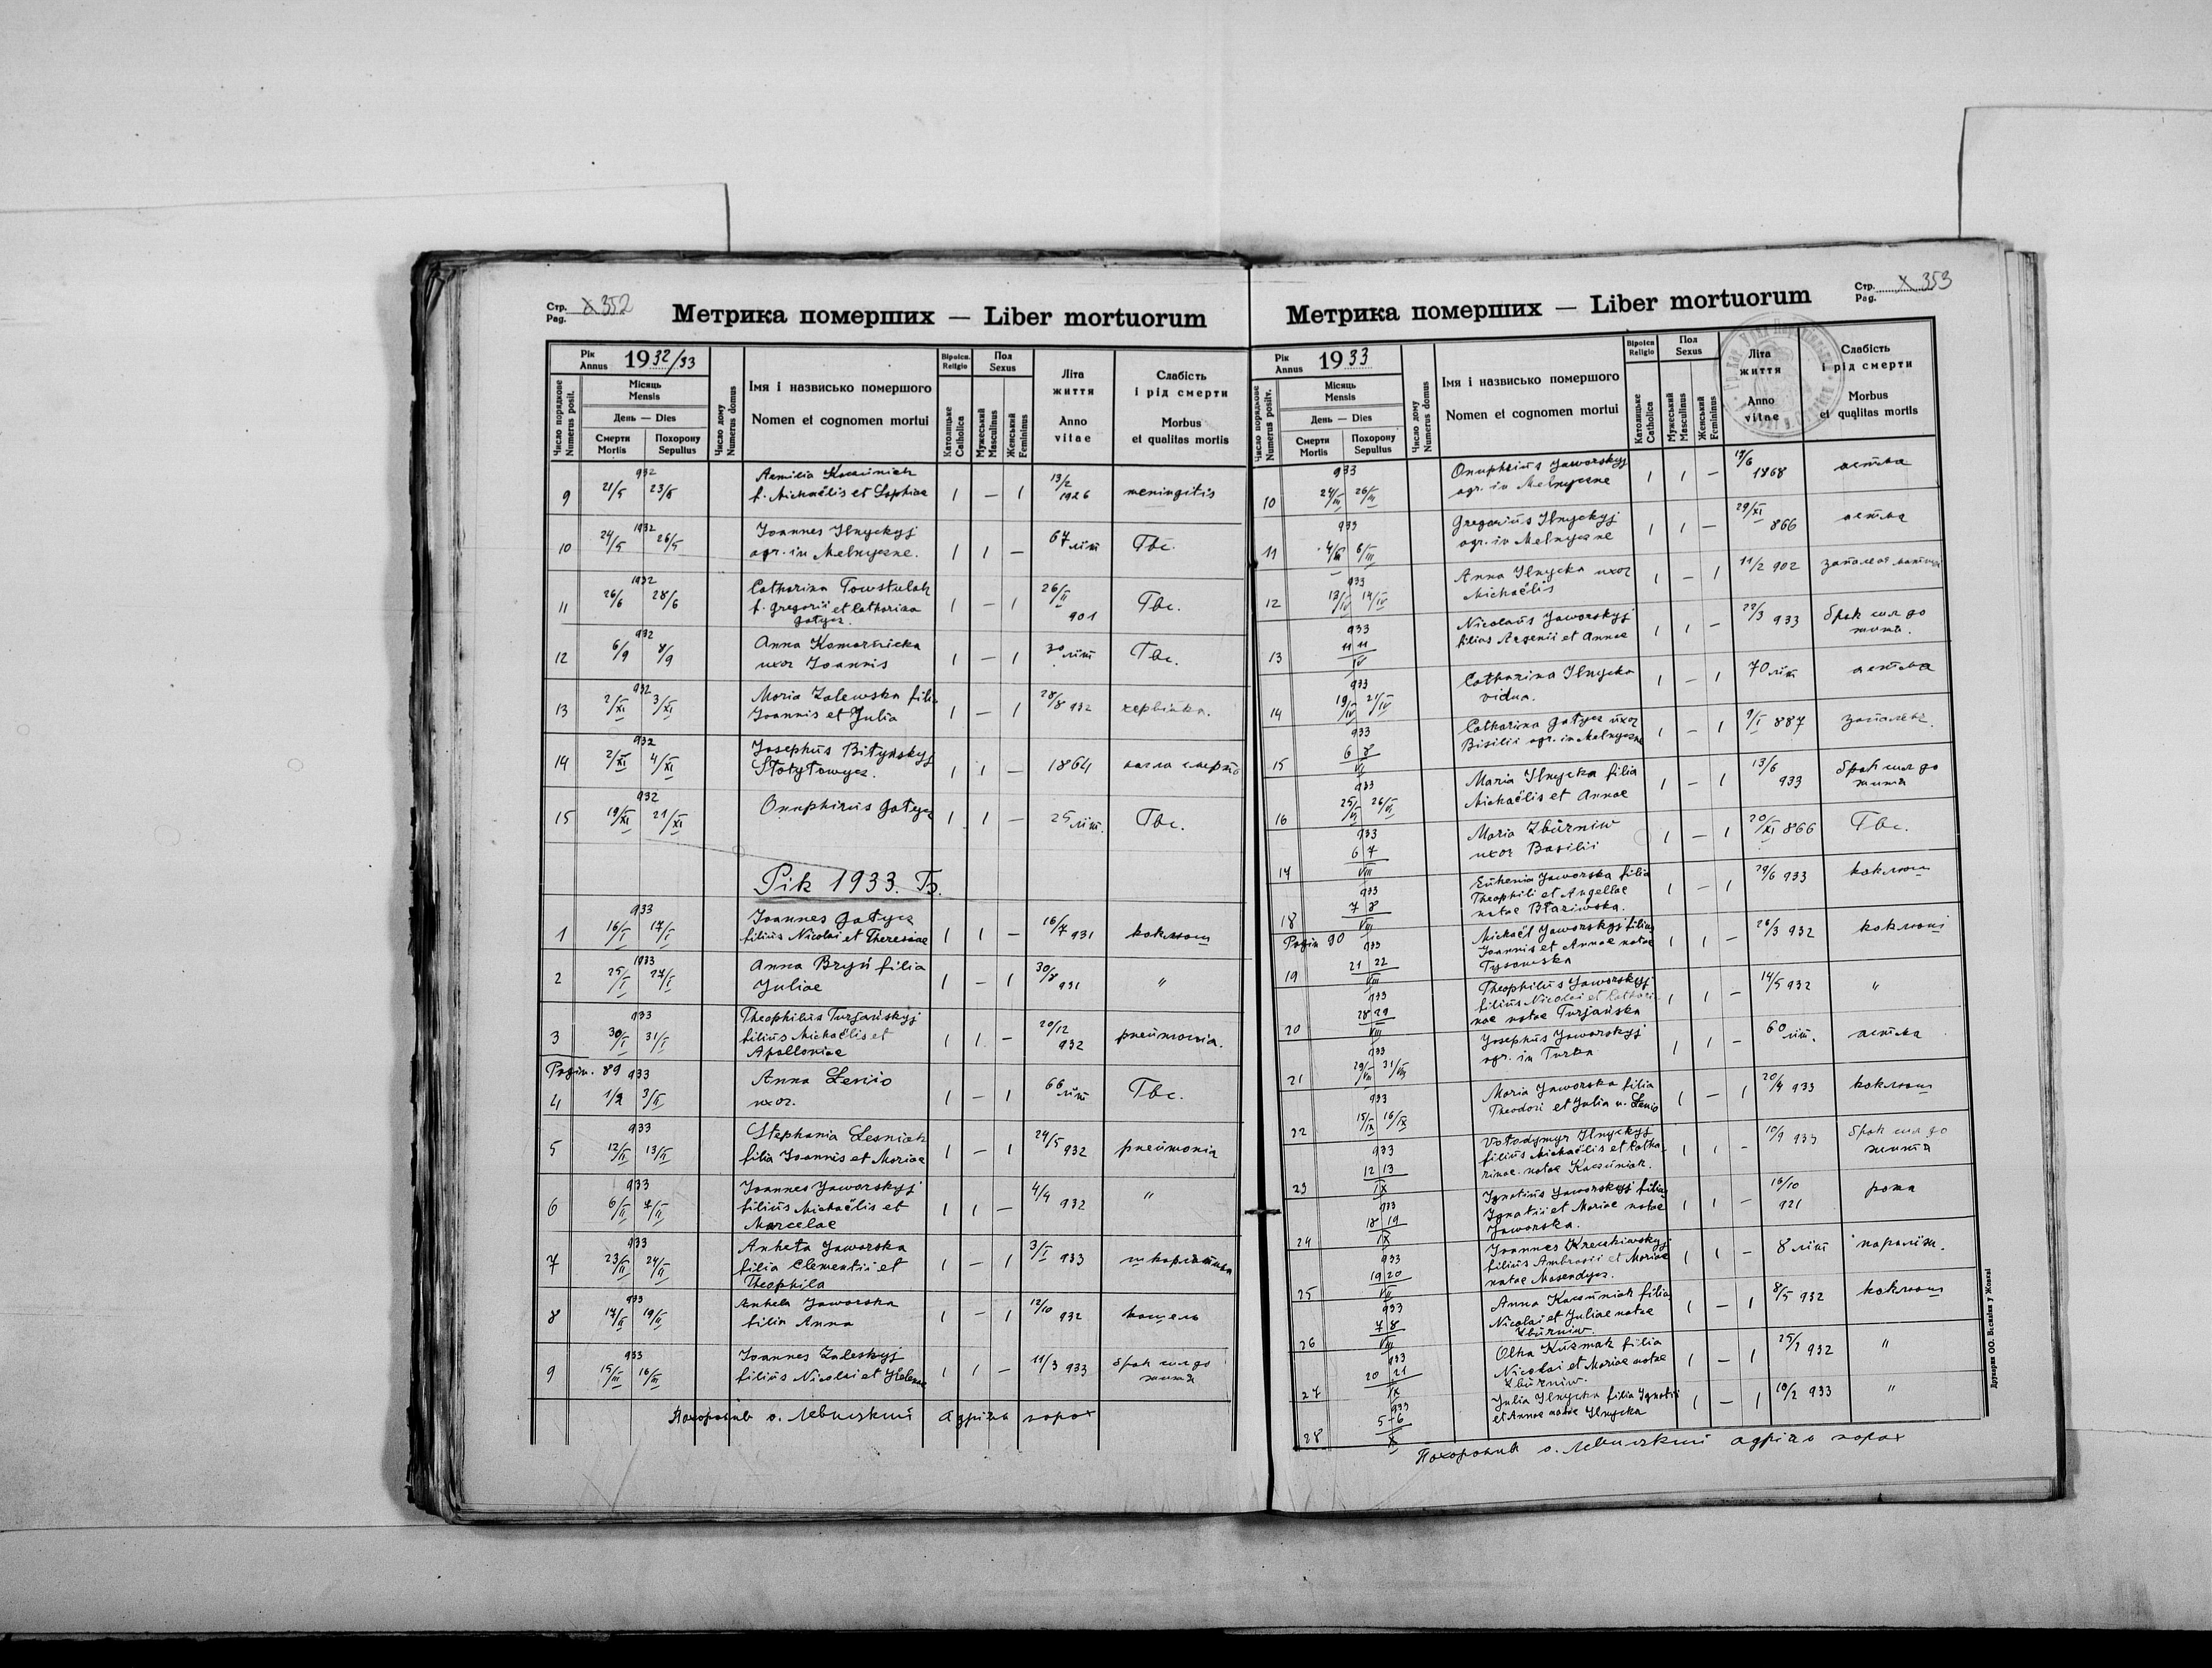 Стр. Pag. X 352
Метрика померших — Liber mortuorum
Рік Annus 1932/33
Число порядкове Numerus posit.
Місяць Mensis
День — Dies
Смерти Mortis
Похорону Sepultus
Число дому Numerus domus
Імя і назвисько помершого
Nomen et cognomen mortui
Віроісп. Religio
Католицьке Catholica
Пол Sexus
Мужеський Masculinus
Женський Femininus
Літа життя
Anno vitae
Слабість і рід смерти
Morbus et qualitas mortis
9 932 21/5 23/5 Aemilia Kocúniak 1 — 1 13/2 1926 meningitis
f. Michaëlis et Sophiae
10 1932 24/5 26/5 Joannes Ilnyckyj 1 1 — 67 літ Твс.
agr. in Melnyczne.
11 1932 26/6 28/6 Catharina Towstulak 1 — 1 26/II 901 Твс.
f. Gregorii et Catharina
Gotycz.
12 932 6/9 8/9 Anna Komarnicka 1 — 1 30 літ Твс.
uxor Joannis
13 932 2/XI 3/XI Maria Zalewska filia 1 — 1 28/8 932 червінка.
Joannis et Julia
14 932 2/XI 4/XI Josephús Bitynskyj 1 1 — 1864 нагла смерть
15 932 19/XI 21/XI Onuphrius Gotycz 1 1 — 25 літ. Твс.
Рік 1933. Б.
1 933 16/I 17/I Joannes Gotycz 1 1 — 16/7 931 коклюш
filiús Nicolai et Theresiae
2 1933 25/I 27/I Anna Bryń filia 1 — 1 30/8 931 "
Juliae
3 933 30/I 31/I Theophilús Turjańskyj 1 1 — 20/12 932 pneúmonia.
filiús Michaëlis et
Apolloniae
Pagin. 89
4 933 1/2 3/II Anna Leniō 1 — 1 66 літ Твс.
uxor.
5 933 12/II 13/II Stephania Lesniak 1 — 1 24/5 932 pneúmonia
filia Joannis et Mariae
6 933 6/II 7/II Joannes Jaworskyj 1 1 — 4/4 932 "
filiús Michaëlis et
Marcelae
7 933 23/II 24/II Anheta Jaworska 1 — 1 3/I 933 шкарлятина
filia Clementii et
Theophila
8 933 17/II 19/II Anhela Jaworska 1 — 1 12/10 932 кашель
filia Anna
9 933 15/III 16/III Joannes Zaleskyj 1 1 — 11/3 933 брак сил до
filiús Nicolai et Helenae життя
Похоронив о. Левицький Адріян парох
Стр. Pag. X 353
Метрика померших — Liber mortuorum
Рік Annus 1933
Число порядкове Numerus positv.
Місяць Mensis
День — Dies
Смерти Mortis
Похорону Sepultus
Число дому Numerus domus
Імя і назвисько помершого
Nomen et cognomen mortui
Віроісп Religio
Католицьке Catholica
Пол Sexus
Мужеський Masculinus
Женський Femininus
Літа життя
Anno vitae
Слабість і рід смерти
Morbus et qualitas mortis
10 933 24/III 26/III Onuphriús Jaworskyj 1 1 — 12/6 1868 астма
agr. in Melnyczne
11 933 4/III 6/III Gregoriús Ilnyckyj 1 1 — 29/XI 866 астма
agr. in Melnyczne
12 933 13/IV 14/IV Anna Ilnycka uxor 1 — 1 11/2 902
Michaëlis
13 933 11 11 IV Nicolaús Jaworskyj 1 1 — 22/3 933 брак сил до
filius Arsenii et Annae життя.
14 933 19/IV 21/IV Catharina Ilnycka 1 — 1 70 літ астма
vidua.
15 933 6 8 VI Catharina Gotycz úxor 1 — 1 9/I 887
Basilii agr. in Melnyczne
16 933 25/VI 26/VI Maria Ilnycka filia 1 — 1 13/6 933 брак сил до
Michaëlis et Annae життя
17 933 6 7 VIII Maria Zbúrniw 1 — 1 20/XI 866 Твс.
uxor Basilii
18 933 7 8 VIII Eúhenia Jaworska filia 1 — 1 29/6 933 коклюш
Theophili et Angellae
natae Błaziwska.
Pagin 90
19 933 21 22 VIII Michaël Jaworskyj filius 1 1 — 26/3 932 коклюш
Joannis et Annae natae
Tysowska
20 933 28 29 VIII Theophilús Jaworskyj 1 1 — 14/5 932 "
filiús Nicolai et Cathari-
nae natae Turjańska
21 933 29/VIII 31/VIII Josephús Jaworskyj 1 1 — 60 літ. астма
agr. in Turka
22 933 15/IX 16/IX Maria Jaworska filia 1 — 1 20/4 933 коклюш
Theodori et Julia n. Lenio
23 933 12 13 IX Wołodymyr Ilnyckyj 1 1 — 10/9 933 брак сил до
filiús Michaëlis et Catha- життя
rinae natae Kocúniak.
24 933 18 19 IX Ignatiús Jaworskyj filius 1 1 — 16/10 921 рожа
Ignatii et Mariae natae
Jaworska.
25 933 19 20 VII Joannes Krechiwskyj 1 1 — 8 літ параліж.
filiús Ambrosii et Mariae
natae Mosendycz.
26 933 7 8 VIII Anna Kocúniak filia 1 — 1 8/5 932 коклюш
Nicolai et Juliae natae
Zbúrniw.
27 933 20 21 IX Olha Kúzmak filia 1 — 1 25/7 932 "
Nicolai et Mariae natae
Zbúrniw.
28 933 5-6 X Julia Ilnycka filia Ignatii 1 — 1 10/2 933 "
et Annae natae Ilnycka
Похоронив о. Левицький Адріян парох
Друкарня ОО. Василіян у Жовкві